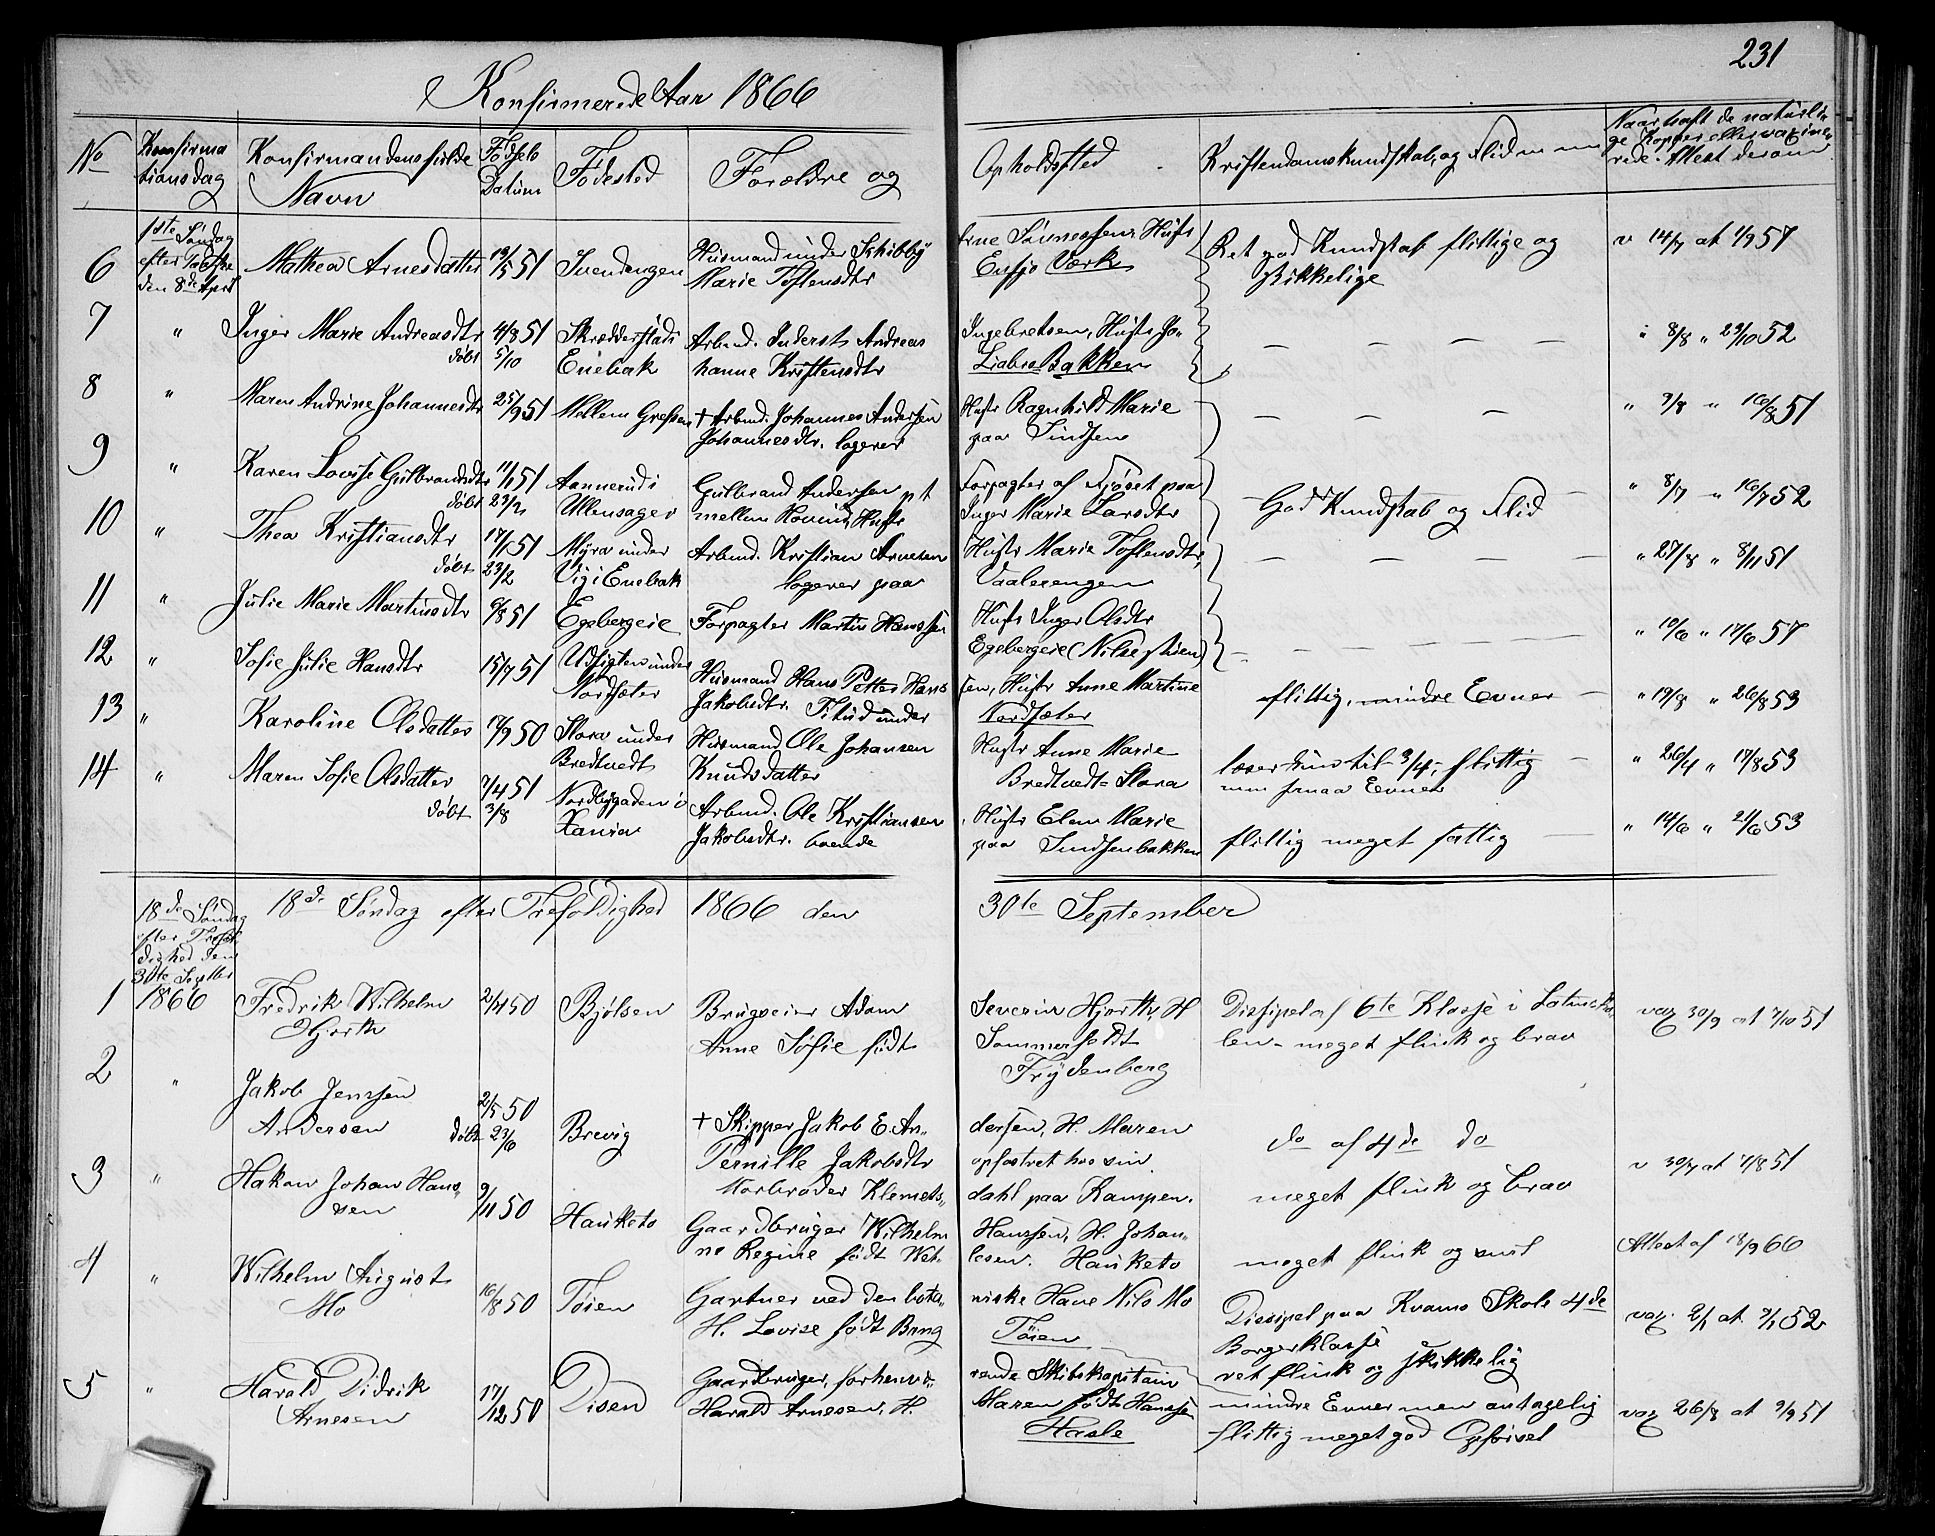 231
Konfirmerede Aar 1866
No
Konfirma
tionsdag
Konfirmandens fulde
Navn
Fødsels
Datum
Fødested
Forældre og
Opholdssted
Kristendomskundskab, og Flid m m
Naar haft de naturli-
ge Kopper eller vaxine-
rede. Attest derom
6
1ste Søndag
efter Paaske
den 8de April
Mathea Arnesdatter
19/5 51
Svendengen
Husmand under Skibby
Marie Toflensdtr
Arne Sørnessen Hustr
Ensjo Værk
Ret god Kundskab flittige og
skikkelige
v 14/7 at 1/9 57
7
"
Inger Marie Andreasdtr
døbt
4/8 51
5/10
Skrædderstad i
Enebak
Arbmd. Inderst Andreas
hanne Kristensdtr
Ingebretsen, Hustr Jo-
Liabro Bakken
— — — —
" 8/8 " 23/10 52
8
"
Maren Andrine Johannesdtr
25/9 51
Mellem Grefsen
+ Arbmd. Johannes Andersen
Johannesdtr. logerer
Hustr Ragnhild Marie
paa Sindsen
— — —
" 9/8 " 16/8 51
9
"
Karen Lovise Gulbrandsdtr
døbt
11/1 51
23/2
Aannerud i
Ullensager
Gulbrand Andersen pt
mellem Hovind, Hustr
Forpagter af Fjøset paa
Inger Marie Larsdtr
God Kundskab og Flid
" 8/7 " 16/7 52
10
"
Thea Kristiansdtr
døbt
17/1 51
23/2
Myra under
Vig i Enebak
Arbmd. Kristian Arnesen
logerer paa
Hustr Marie Toflensdtr,
Vaalerengen
— — — —
" 27/8 " 8/11 51
11
"
Julie Marie Martinsdtr
6/8 51
Egebergeie
Forpagter Martin Hanssen
Hustr Inger Olsdtr
Egebergeie (Nilsestuen)
— — — —
" 10/6 " 17/6 57
12
"
Sofie Julie Hansdtr
15/7 51
Udsigten under
Nordsæter
Husmand Hans Petter Hans
Jakobsdtr. under
sen, Hustr Anne Martine
Nordsæter
flittig, mindre Evner —
" 19/8 " 26/8 53
13
"
Karoline Olsdatter
17/9 50
Slora under
Bredtvedt
Husmand Ole Johansen
Knudsdatter
Hustr Anne Marie
Bredtvedt Slora
læser kun til 3/4, flittig —
men smaa Evner
" 26/4 " 17/8 53
14
"
Maren Sofie Olsdatter
døbt
7/4 51
3/8
Nordbygaden i
Xania
Arbmd. Ole Kristiansen
Jakobsdtr. boende
Hustr Elen Marie
paa Sindsenbakken
flittig meget fattig —
" 14/6 " 21/6 53
18de Søndag
efter Trefol
dighed den
30te Septbr
1866
18de Søndag efter Trefoldighed 1866 den 30te September
1
Fredrik Wilhelm
Hjorth
2/11 50
Bjølsen
Brugseier Adam
Anne Sofie født
Severin Hjorth, H
Sommerfeldt
Frydenberg
Dissipel af 6te Klasse i Latinsko
len - meget flink og brav
vax 30/9 at 7/10 51
2
"
Jakob Jenssen
Andersen
døbt
2/5 50
23/6
Brevig
+ Skipper Jakob E. An-
Pernille Jakobsdtr
Morbroder Klemets-
dersen, H. Maren
opfostret hos sin
dahl paa Kampen.
do af 4de do
meget flink og brav
v 30/7 at 7/8 51
3
"
Hakon Johan Hans-
sen
9/11 50
Hauketo
Gaardbruger Wilhelm
ne Regine født Wet-
Hanssen, H. Johan-
lesen. Hauketo
meget flink og snil
Attest af 18/9 66
4
"
Wilhelm August
Mo
16/8 50
Tøien
Gartner ved den bota-
H. Lovise født Bang
niske Have Nils Mo
Tøien
Dissipel paa Kvams Skole 4de
Borgerklasse
ret flink og skikkelig
vax. 2/1 at 9/1 52
5
"
Harald Didrik
Arnesen
17/12 50
Disen
Gaardbruger, forhenvæ-
Harald Arnesen, H.
rende Skibskapitain
Maren født Hanssen
Hasle
mindre Evner men antagelig
flittig meget god Opførsel
vax 26/8 at 2/9 51